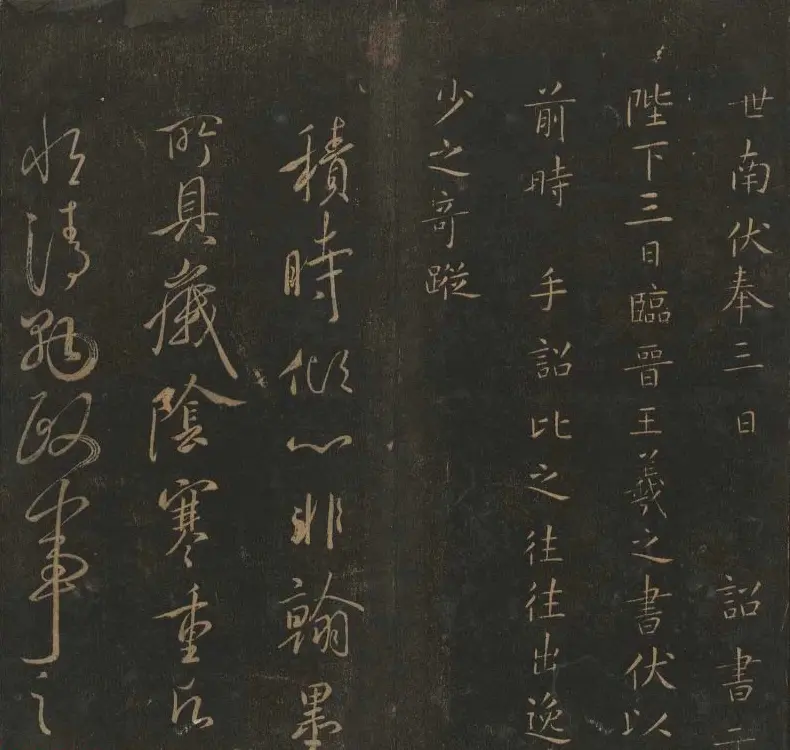 世南伏奉三日 詔書
陛下三日臨晉王羲之書伏以
前時 手詔比之往往出逸
少之奇蹤
積時傾心非翰墨
所具歲陰寒重
清勉政事之